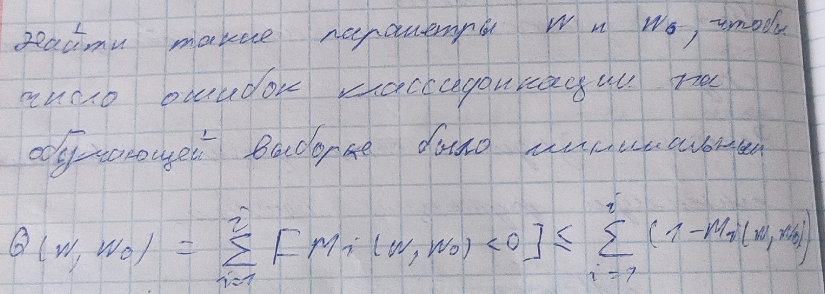 Найти такие параметры w и w₀, чтобы
число ошибок классификации на
обучающей выборке было минимальным
Q(w, w₀) = ∑_{i=1}^{i} [Mi(w, w₀) < 0] ≤ ∑_{i=1}^{i} (1 - Mi(w, w₀))